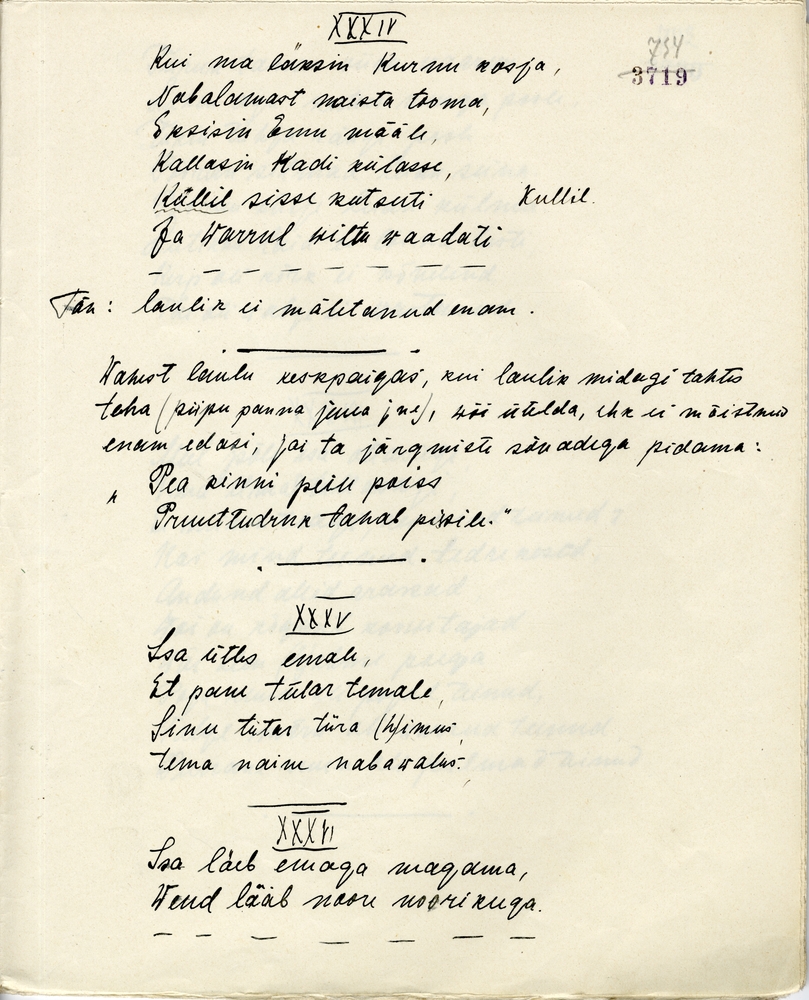 XXXIV
734
3719
Kui ma läksin Kurnu kosja,
Nabalamast naista tooma,
Eksisin Emu määle,
Kallasin Kadi külasse,
Küllil sisse kutsuti Kullil.
Ja Warrul wiltu waadati
Täh: laulik ei mäletanud enam.
Wahest laulu keskpaigas, kui laulik midagi tahtis
teha (piipu panna juua jne), wõi ütelda, ehk ei mõistnud
enam edasi, jäi ta järgmiste sõnadega pidama:
„Pea kinni peiu poiss
Pruuttüdruk tahab pissile."
XXXV
Isa ütles emale,
Et pane tütar temale,
Sinu tütar türa (h)imus,
tema naine nabawalus.
XXXVI
Isa läeb emaga magama,
Wend lääb noore noorikuga.